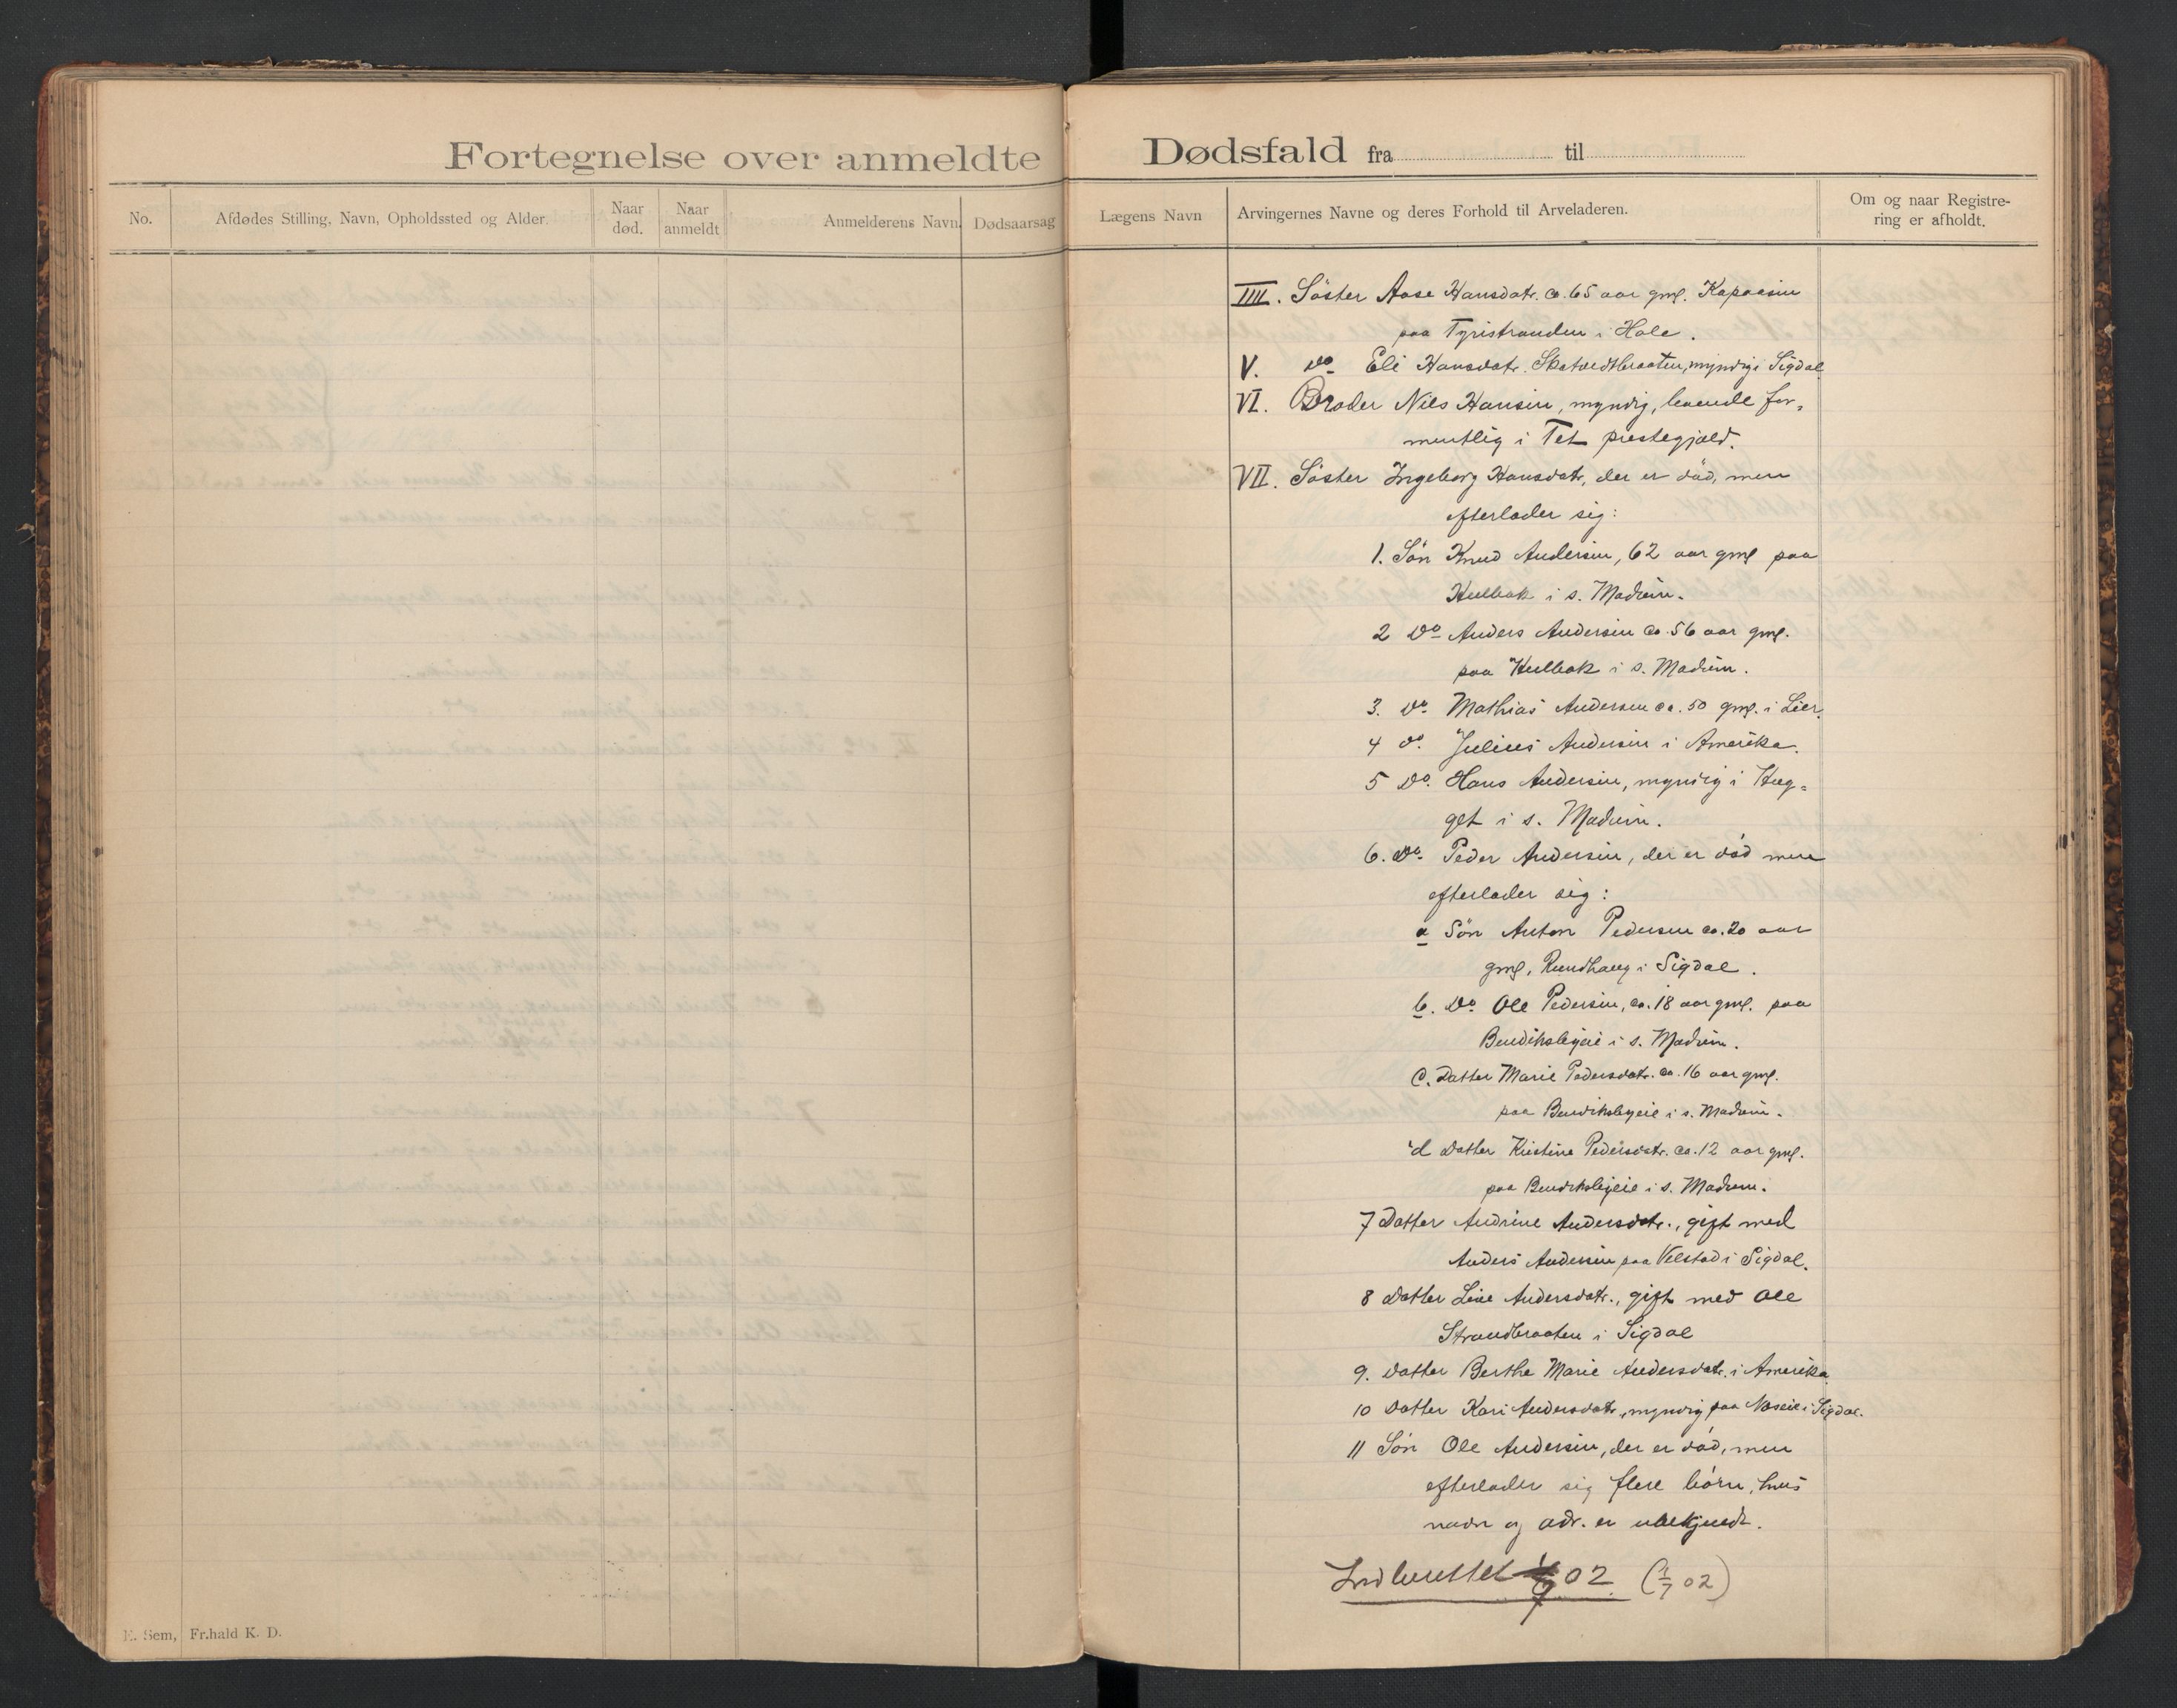 Fortegnelse over anmeldte Dødsfald fra til
No.
Afdødes Stilling, Navn, Opholdssted og Alder.
Naar død.
Naar anmeldt
Anmelderens Navn.
Dødsaarsag
Lægens Navn
Arvingernes Navne og deres Forhold til Arveladeren.
Om og naar Registre-
ring er afholdt.
IIII. Söster Aase Hansdatr. ca. 65 aar gml.
paa Tyristranden i Hole.
V. do Eli Hansdatr. Skatvedtbraaten, myndig i Sigdal
VI. Broder Nils Hansen, myndig, boende for-
mentlig i præstegjeld.
VII. Söster Ingeborg Hansdatr, der er död, men
efterlader sig:
1. Sön Knud Andersen, 62 aar gml paa
Hulbak i s. Modum.
2 Do Anders Andersen ca. 56 aar gml.
paa Hulbak i s. Modum.
3. Do. Mathias Andersen ca. 50 gml. i Lier.
4 do. Julius Andersen i Amerika.
5 Do. Hans Andersen, myndig i Hag-
get i s. Modum.
6. Do. Peder Andersen, der er död men
efterlader sig:
a Sön Anton Pedersen ca. 20 aar
gml, Rundhaug i Sigdal.
b. Do. Ole Pedersen, ca. 18 aar gml. paa
i s. Modum.
C. Datter Marie Pedersdatr. ca. 16 aar gml.
paa i s. Modum.
d Datter Kristine Pedersdatr. ca. 12 aar gml.
paa i s. Modum.
7 Datter Andrine Andersdatr., gift med
Anders Andersen paa Velstad i Sigdal.
8 Datter Line Andersdatr., gift med Ole
Strandbraaten i Sigdal
9. Datter Berthe Marie Andersdatr. i Amerika.
10 Datter Kari Andersdatr, myndig paa i Sigdal.
11 Sön Ole Andersen, der er död, men
efterlader sig flere börn, hvis
navn og adr. er ubekjendt.
02 (1/7 02)
E. Sem, Fr.hald K. D.